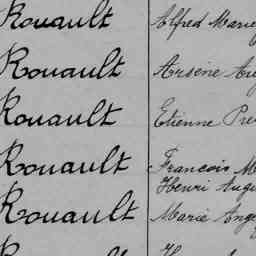 Rouault Alfred Marie
Rouault Arsène
Rouault Etienne
Rouault François
Henri
Rouault Marie